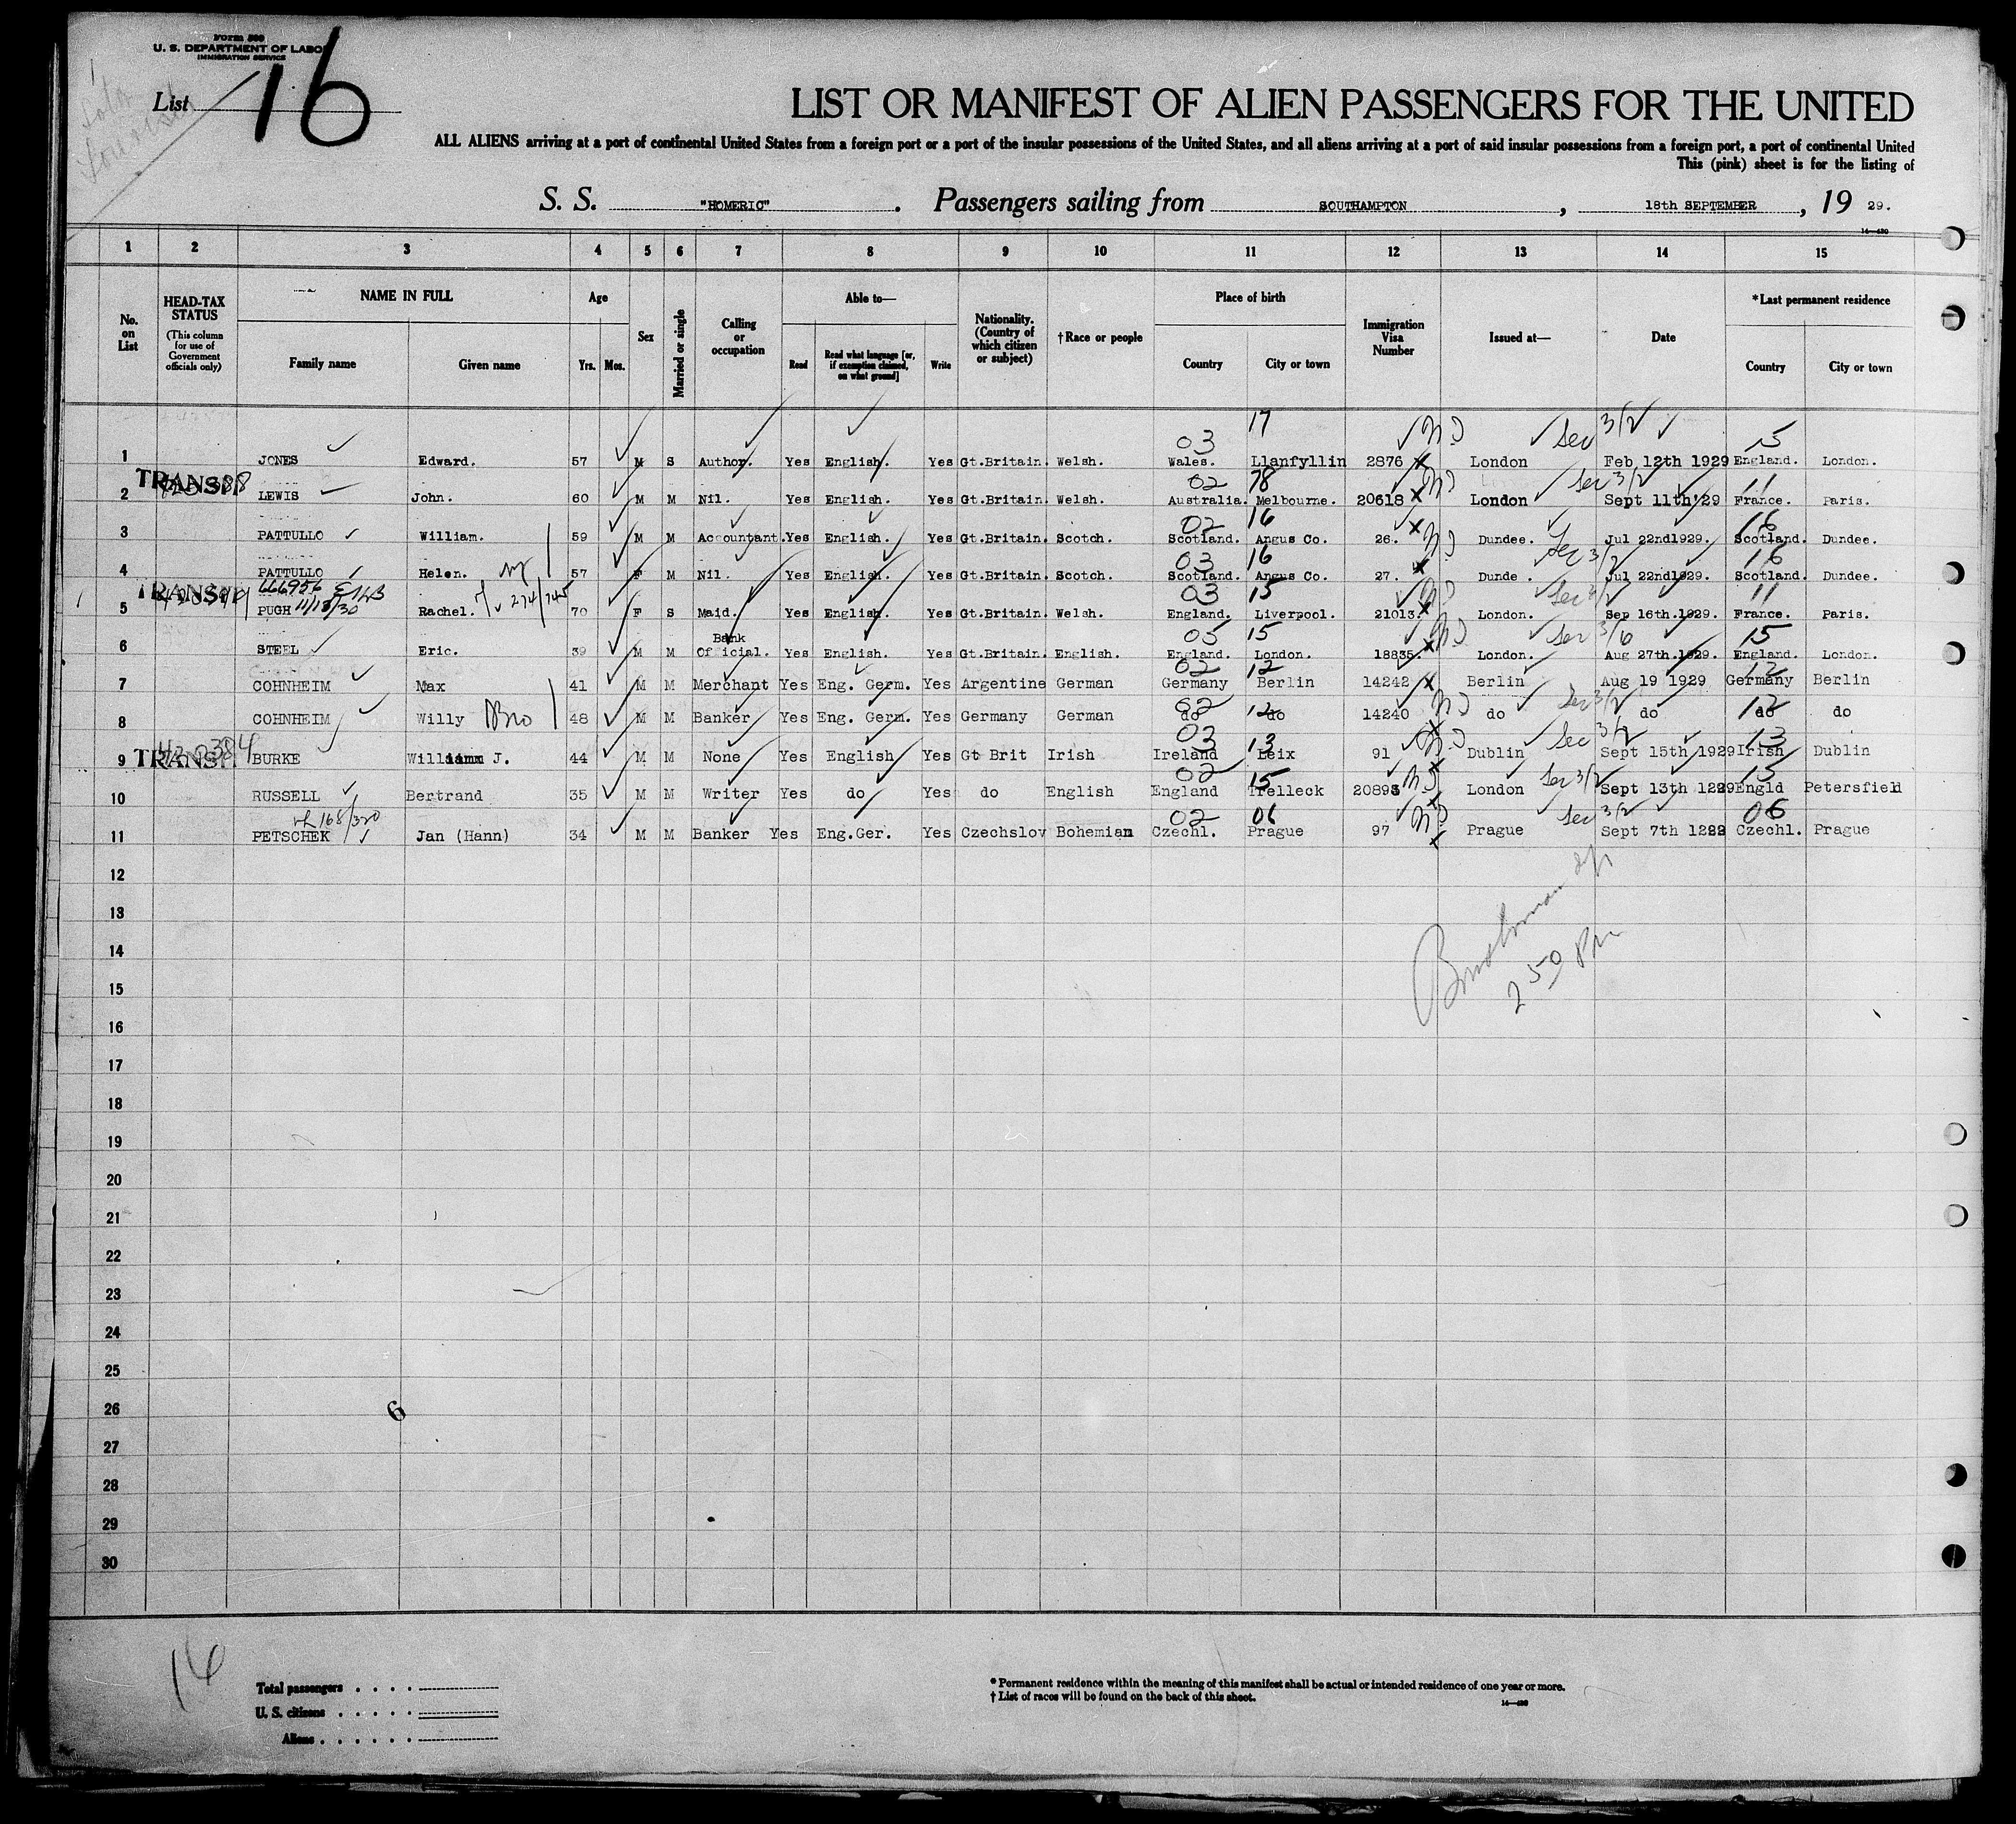 Form 500
U. S. DEPARTMENT OF LABOR
IMMIGRATION SERVICE
List 16
LIST OR MANIFEST OF ALIEN PASSENGERS FOR THE UNITED
ALL ALIENS arriving at a port of continental United States from a foreign port or a port of the insular possessions of the United States, and all aliens arriving at a port of said insular possessions from a foreign port, a port of continental United
This (pink) sheet is for the listing of
S. S. "HOMERIC". Passengers sailing from SOUTHAMPTON, 18th SEPTEMBER, 19 29.
1 2 3 4 5 6 7 8 9 10 11 12 13 14 15
No. on List
HEAD-TAX STATUS (This column for use of Government officials only)
NAME IN FULL
Family name Given name
Age
Yrs. Mos.
Sex
Married or single
Calling or occupation
Able to—
Read
Read what language [or, if exemption claimed, on what ground]
Write
Nationality. (Country of which citizen or subject)
†Race or people
Place of birth
Country City or town
Immigration Visa Number
Issued at—
Date
*Last permanent residence
Country City or town
03 17 ND Sec 3/2 15
1 JONES Edward. 57 M S Author. Yes English. Yes Gt.Britain. Welsh. Wales. Llanfyllin 2876 London Feb 12th 1929 England. London.
TRANSIT 02 78 ND Sec 3/2 11
2 LEWIS John. 60 M M Nil. Yes English. Yes Gt.Britain. Welsh. Australia. Melbourne. 20618 London Sept 11th'29 France. Paris.
02 16 16
3 PATTULLO William. 59 M M Accountant. Yes English. Yes Gt.Britain. Scotch. Scotland. Angus Co. 26. Dundee. Jul 22nd1929. Scotland. Dundee.
03 16 ND Sec 3/2 16
4 PATTULLO Helen. 57 F M Nil. Yes English. Yes Gt.Britain. Scotch. Scotland. Angus Co. 27. Dunde . Jul 22nd1929. Scotland. Dundee.
TRANSIT 666956 03 15 ND Sec 11
5 PUGH 11/18/30 Rachel. 70 F S Maid. Yes English. Yes Gt.Britain. Welsh. England. Liverpool. 21013. London. Sep 16th.1929. France. Paris.
05 15 ND Sec 3/6 15
6 STEEL Eric. 39 M M Bank Official. Yes English. Yes Gt.Britain. English. England. London. 18835. London. Aug 27th.1929. England. London.
02 12 12
7 COHNHEIM Max 41 M M Merchant Yes Eng. Germ. Yes Argentine German Germany Berlin 14242 Berlin Aug 19 1929 Germany Berlin
02 12 ND Sec 3/2 12
8 COHNHEIM Willy Bro 48 M M Banker Yes Eng. Germ. Yes Germany German do do 14240 do do do do
03 13 ND Sec 3/2 13
9 TRANSIT BURKE William J. 44 M M None Yes English Yes Gt Brit Irish Ireland Leix 91 Dublin Sept 15th 1929 Irish Dublin
02 15 ND Sec 3/2 15
10 RUSSELL Bertrand 35 M M Writer Yes do Yes do English England Trelleck 20895 London Sept 13th 1229 Engld Petersfield
168/320 02 06 ND Sec 3/2 06
11 PETSCHEK Jan (Hann) 34 M M Banker Yes Eng.Ger. Yes Czechslov Bohemian Czechl. Prague 97 Prague Sept 7th 1229 Czechl. Prague
12
13
14
2 50 PM
15
16
17
18
19
20
21
22
23
24
25
26
6
27
28
29
30
16
Total passengers
U. S. citizens
Aliens
* Permanent residence within the meaning of this manifest shall be actual or intended residence of one year or more.
† List of races will be found on the back of this sheet.